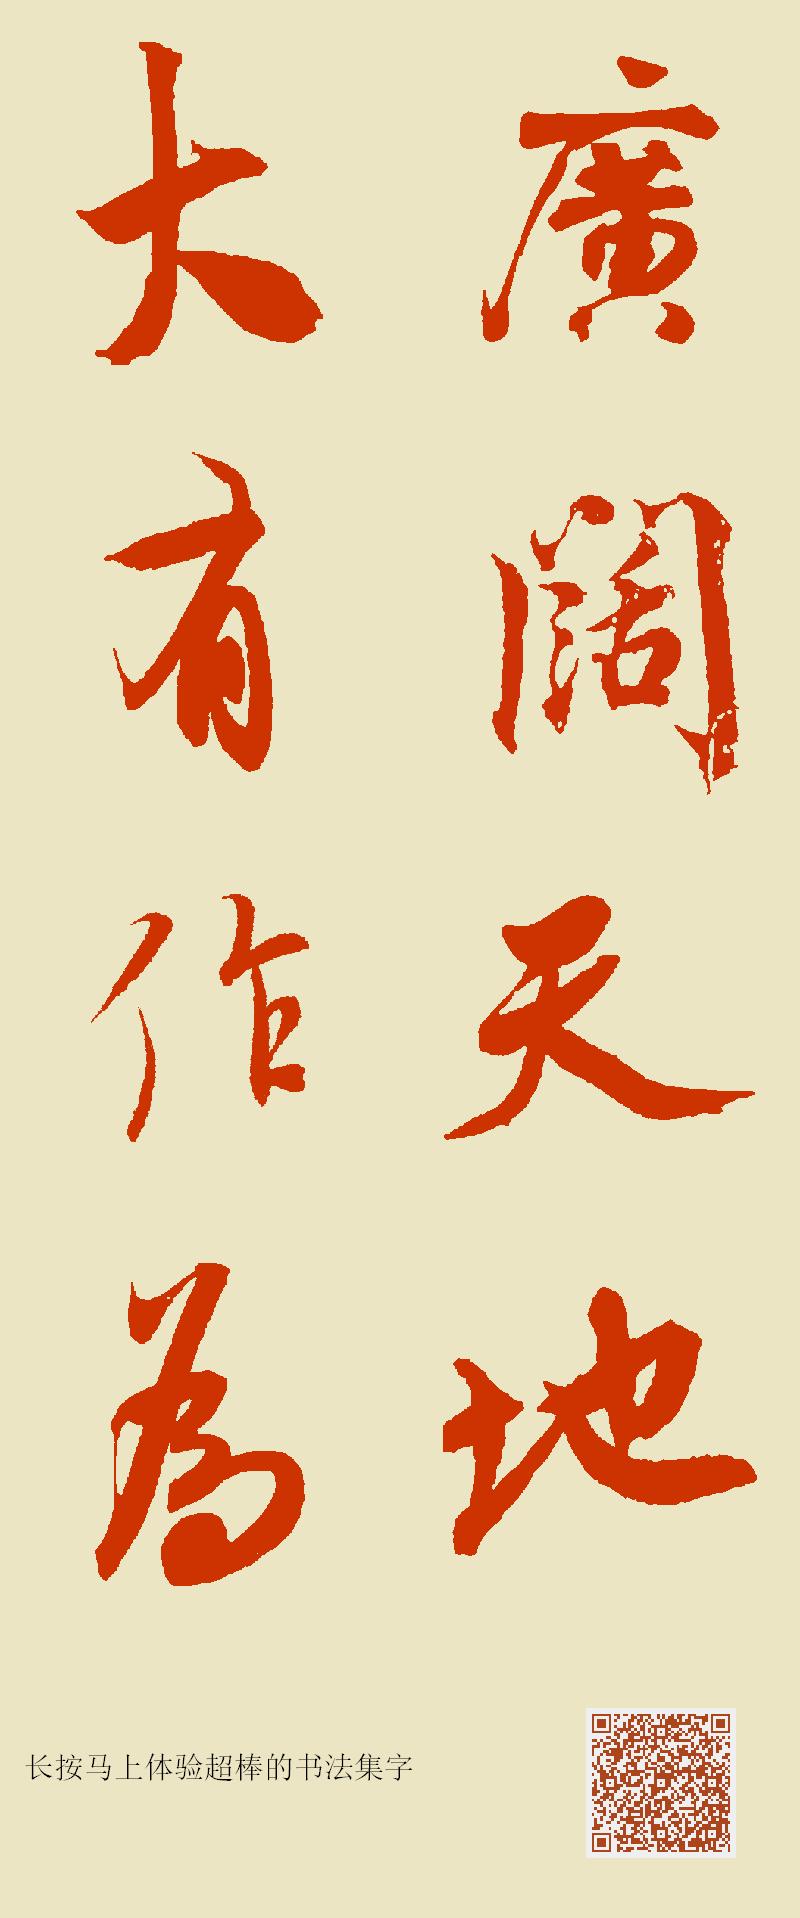 廣闊天地
大有作為
长按马上体验超棒的书法集字